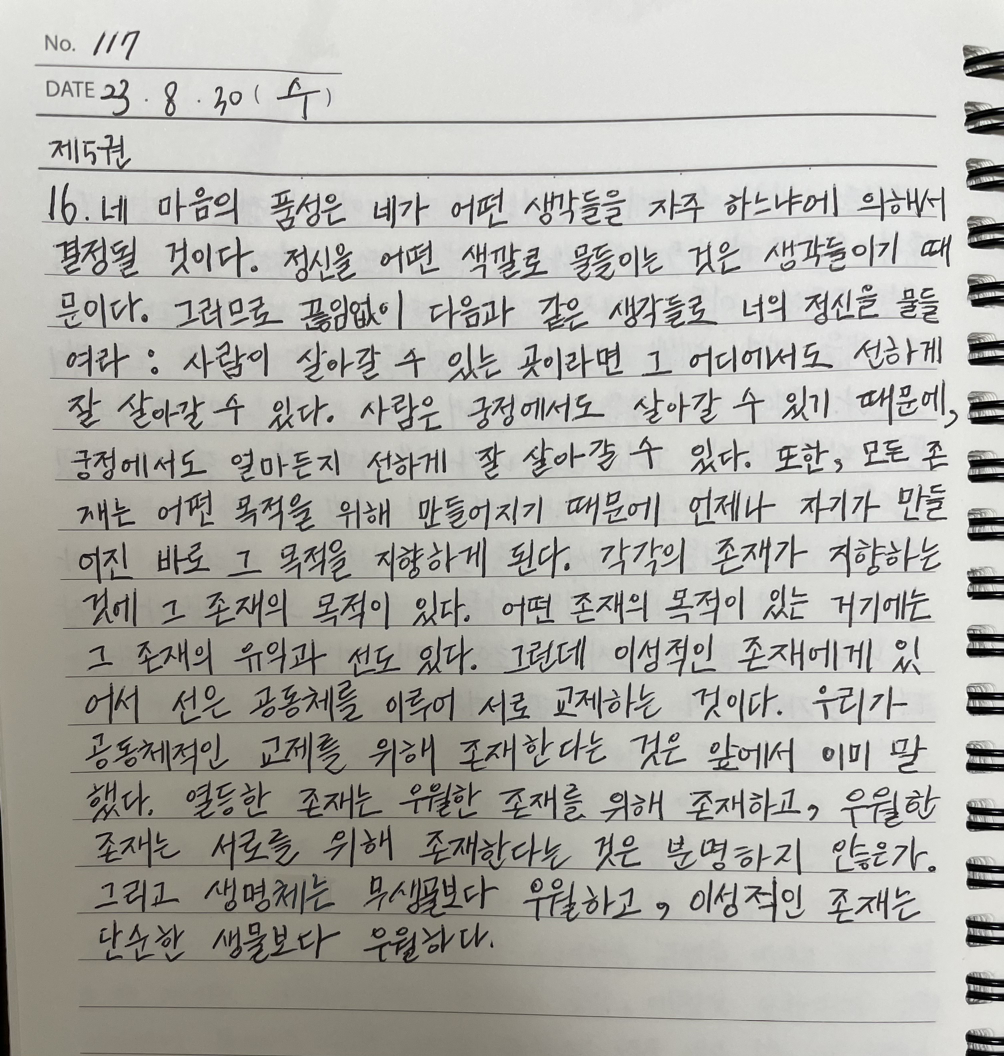 No. 117
DATE 23. 8. 30 ( 수 )
제5권
16. 네 마음의 품성은 네가 어떤 생각들을 자주 하느냐에 의해서
결정될 것이다. 정신을 어떤 색깔로 물들이는 것은 생각들이기 때
문이다. 그러므로 끊임없이 다음과 같은 생각들로 너의 정신을 물들
여라 : 사람이 살아갈 수 있는 곳이라면 그 어디에서도 선하게
잘 살아갈 수 있다. 사람은 궁정에서도 살아갈 수 있기 때문에,
궁정에서도 얼마든지 선하게 잘 살아갈 수 있다. 또한, 모든 존
재는 어떤 목적을 위해 만들어지기 때문에 언제나 자기가 만들
어진 바로 그 목적을 지향하게 된다. 각각의 존재가 지향하는
것에 그 존재의 목적이 있다. 어떤 존재의 목적이 있는 거기에는
그 존재의 유익과 선도 있다. 그런데 이성적인 존재에게 있
어서 선은 공동체를 이루어 서로 교제하는 것이다. 우리가
공동체적인 교제를 위해 존재한다는 것은 앞에서 이미 말
했다. 열등한 존재는 우월한 존재를 위해 존재하고, 우월한
존재는 서로를 위해 존재한다는 것은 분명하지 않은가.
그리고 생명체는 무생물보다 우월하고, 이성적인 존재는
단순한 생물보다 우월하다.